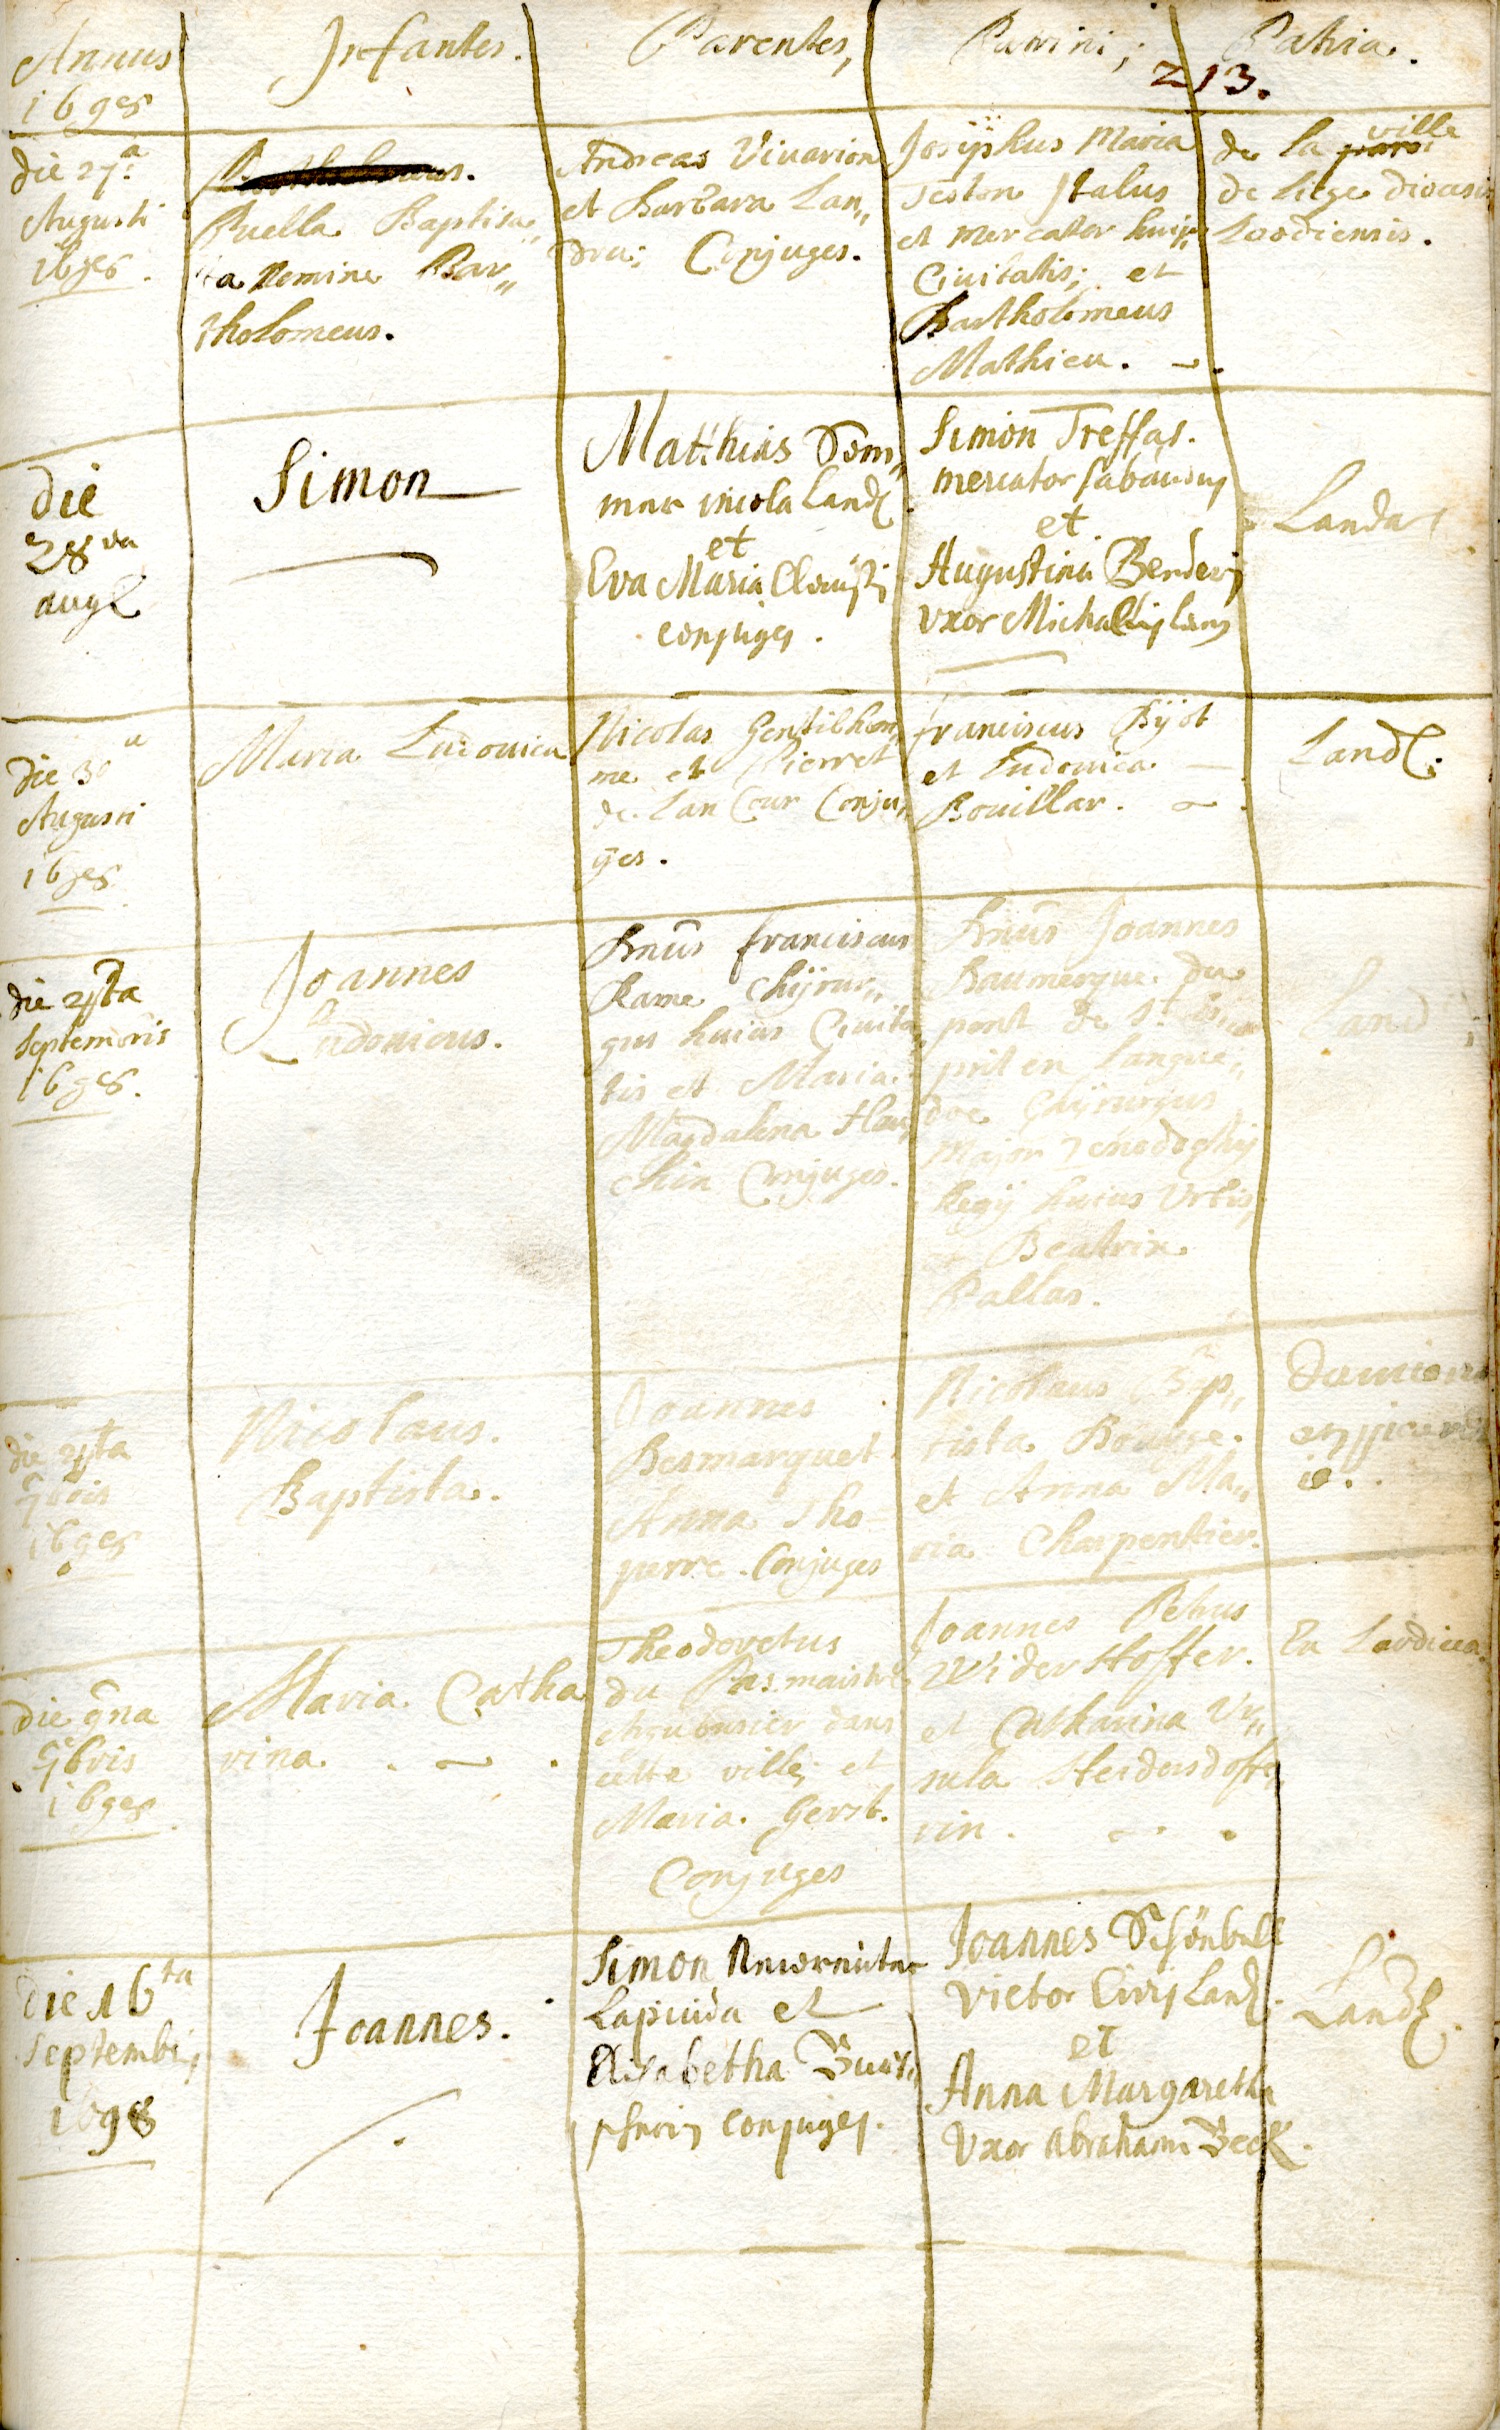 Annus
1698
Infantes.
Parentes,
Patrini;
Patria.
213.
die 27.a
Augusti
1698.
Puella Baptisa„
ta nomine Bar„
tholomeus.
Andreas Vivarion
et Barbara Lan„
dru: Conjuges.
Josephus Maria
Teston Italus
et mercator huius
Civitatis; et
Bartholomeus
Mathieu.
de la ville
de Liege diocesis
Leodiensis.
die
28va
aug
Simon
Matthias Som„
mer incola Land
et
Eva Maria
conjuges.
Simon Treffas.
mercator Sabaudus
et
Augustina
uxor
Landa
die 30a
Augusti
1698
Maria Ludovica
Nicolas Gentilhom„
me et Pierret
de Lan Cour Conju„
ges.
franciscus Byot
et Ludovica
Bouillar.
Land.
die 4ta
Septembris
1698.
Joannes
Ludovicus.
Dnus franciscus
Rame Chijrur„
gus huius Civita„
tis et Maria
Magdalena Hau„
chin Conjuges.
Dnus Joannes
Baumergue du
pont de St.
prit en Langue„
doc Chijrurgus
Major
Regij huius Urbis,
Beatrix
Pallas.
Land
die 4ta
7bris
1698
Nicolaus.
Baptista.
Joannes
Besmarquet
Anna Tho
pierre. Conjuges
Nicolaus Bap„
tista
et Anna Ma„
ria Charpentier.
Damiens
en picardi
ie.
die 9na
7bris
1698
Maria Catha
rina.
Theodoretus
du Pasmaistre
Arcubusier dans
cette ville; et
Maria Gerst.
Conjuges
Joannes Petrus
Widerstoffer.
et Catharina Ur„
sula Heidersdoffe„
rin.
Ex Lardicea
die 16ta
Septembris
1698
Joannes.
Simon
Lapicida et
Elisabetha
conjuges.
Joannes Schönbull
vietor Civis Land.
et
Anna Margaretha
Uxor Abraham Beck.
Land.